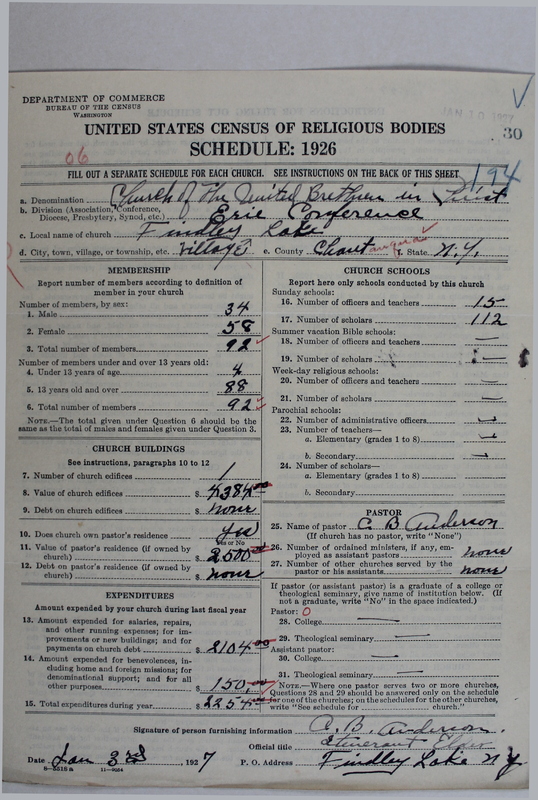 DEPARTMENT OF COMMERCE
BUREAU OF THE CENSUS
WASHINGTON
UNITED STATES CENSUS OF RELIGIOUS BODIES
30
SCHEDULE: 1926
06
194
FILL OUT A SEPARATE SCHEDULE FOR EACH CHURCH. SEE INSTRUCTIONS ON THE BACK OF THIS SHEET
a. Denomination Church of The United Brethren in Christ
b. Division (Association, Conference, Diocese, Presbytery, Synod, etc.) Erie Conference
c. Local name of church Findley Lake
d. City, town, village, or township, etc. Village e. County Chautauqua f. State N.Y.
MEMBERSHIP
Report number of members according to definition of member in your church
Number of members, by sex:
1. Male 34
2. Female 58
3. Total number of members 92
Number of members under and over 13 years old:
4. Under 13 years of age 4
5. 13 years old and over 88
6. Total number of members 92
NOTE.—The total given under Question 6 should be the same as the total of males and females given under Question 3.
CHURCH BUILDINGS
See instructions, paragraphs 10 to 12
7. Number of church edifices 1
8. Value of church edifices $ 4384.00
9. Debt on church edifices $ none
10. Does church own pastor's residence yes
Yes or No
11. Value of pastor's residence (if owned by church) $ 2500.00
12. Debt on pastor's residence (if owned by church) $ none
EXPENDITURES
Amount expended by your church during last fiscal year
13. Amount expended for salaries, repairs, and other running expenses; for improvements or new buildings; and for payments on church debt $ 2104.00
14. Amount expended for benevolences, including home and foreign missions; for denominational support; and for all other purposes $ 150.00
15. Total expenditures during year $ 2254.00
CHURCH SCHOOLS
Report here only schools conducted by this church
Sunday schools:
16. Number of officers and teachers 15
17. Number of scholars 112
Summer vacation Bible schools:
18. Number of officers and teachers —
19. Number of scholars —
Week-day religious schools:
20. Number of officers and teachers —
21. Number of scholars —
Parochial schools:
22. Number of administrative officers —
23. Number of teachers—
a. Elementary (grades 1 to 8) —
b. Secondary —
24. Number of scholars—
a. Elementary (grades 1 to 8)
b. Secondary
PASTOR
25. Name of pastor C. B. Anderson
(If church has no pastor, write "None")
26. Number of ordained ministers, if any, employed as assistant pastors none
27. Number of other churches served by the pastor or his assistants none
If pastor (or assistant pastor) is a graduate of a college or theological seminary, give name of institution below. (If not a graduate, write "No" in the space indicated.)
Pastor: 0
28. College —
29. Theological seminary —
Assistant pastor:
30. College —
31. Theological seminary —
NOTE.—Where one pastor serves two or more churches, Questions 28 and 29 should be answered only on the schedule for one of the churches; on the schedules for the other churches, write "See schedule for church.")
Signature of person furnishing information C. B. Anderson.
Official title Itinerant Elder
Date Jan 3rd, 1927 P. O. Address Findley Lake N Y
8—5516 a 11—9064